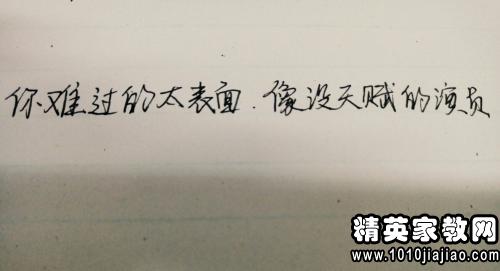 你难过的太表面.像没天赋的演员
精英家教网
www.1010jiajiao.com